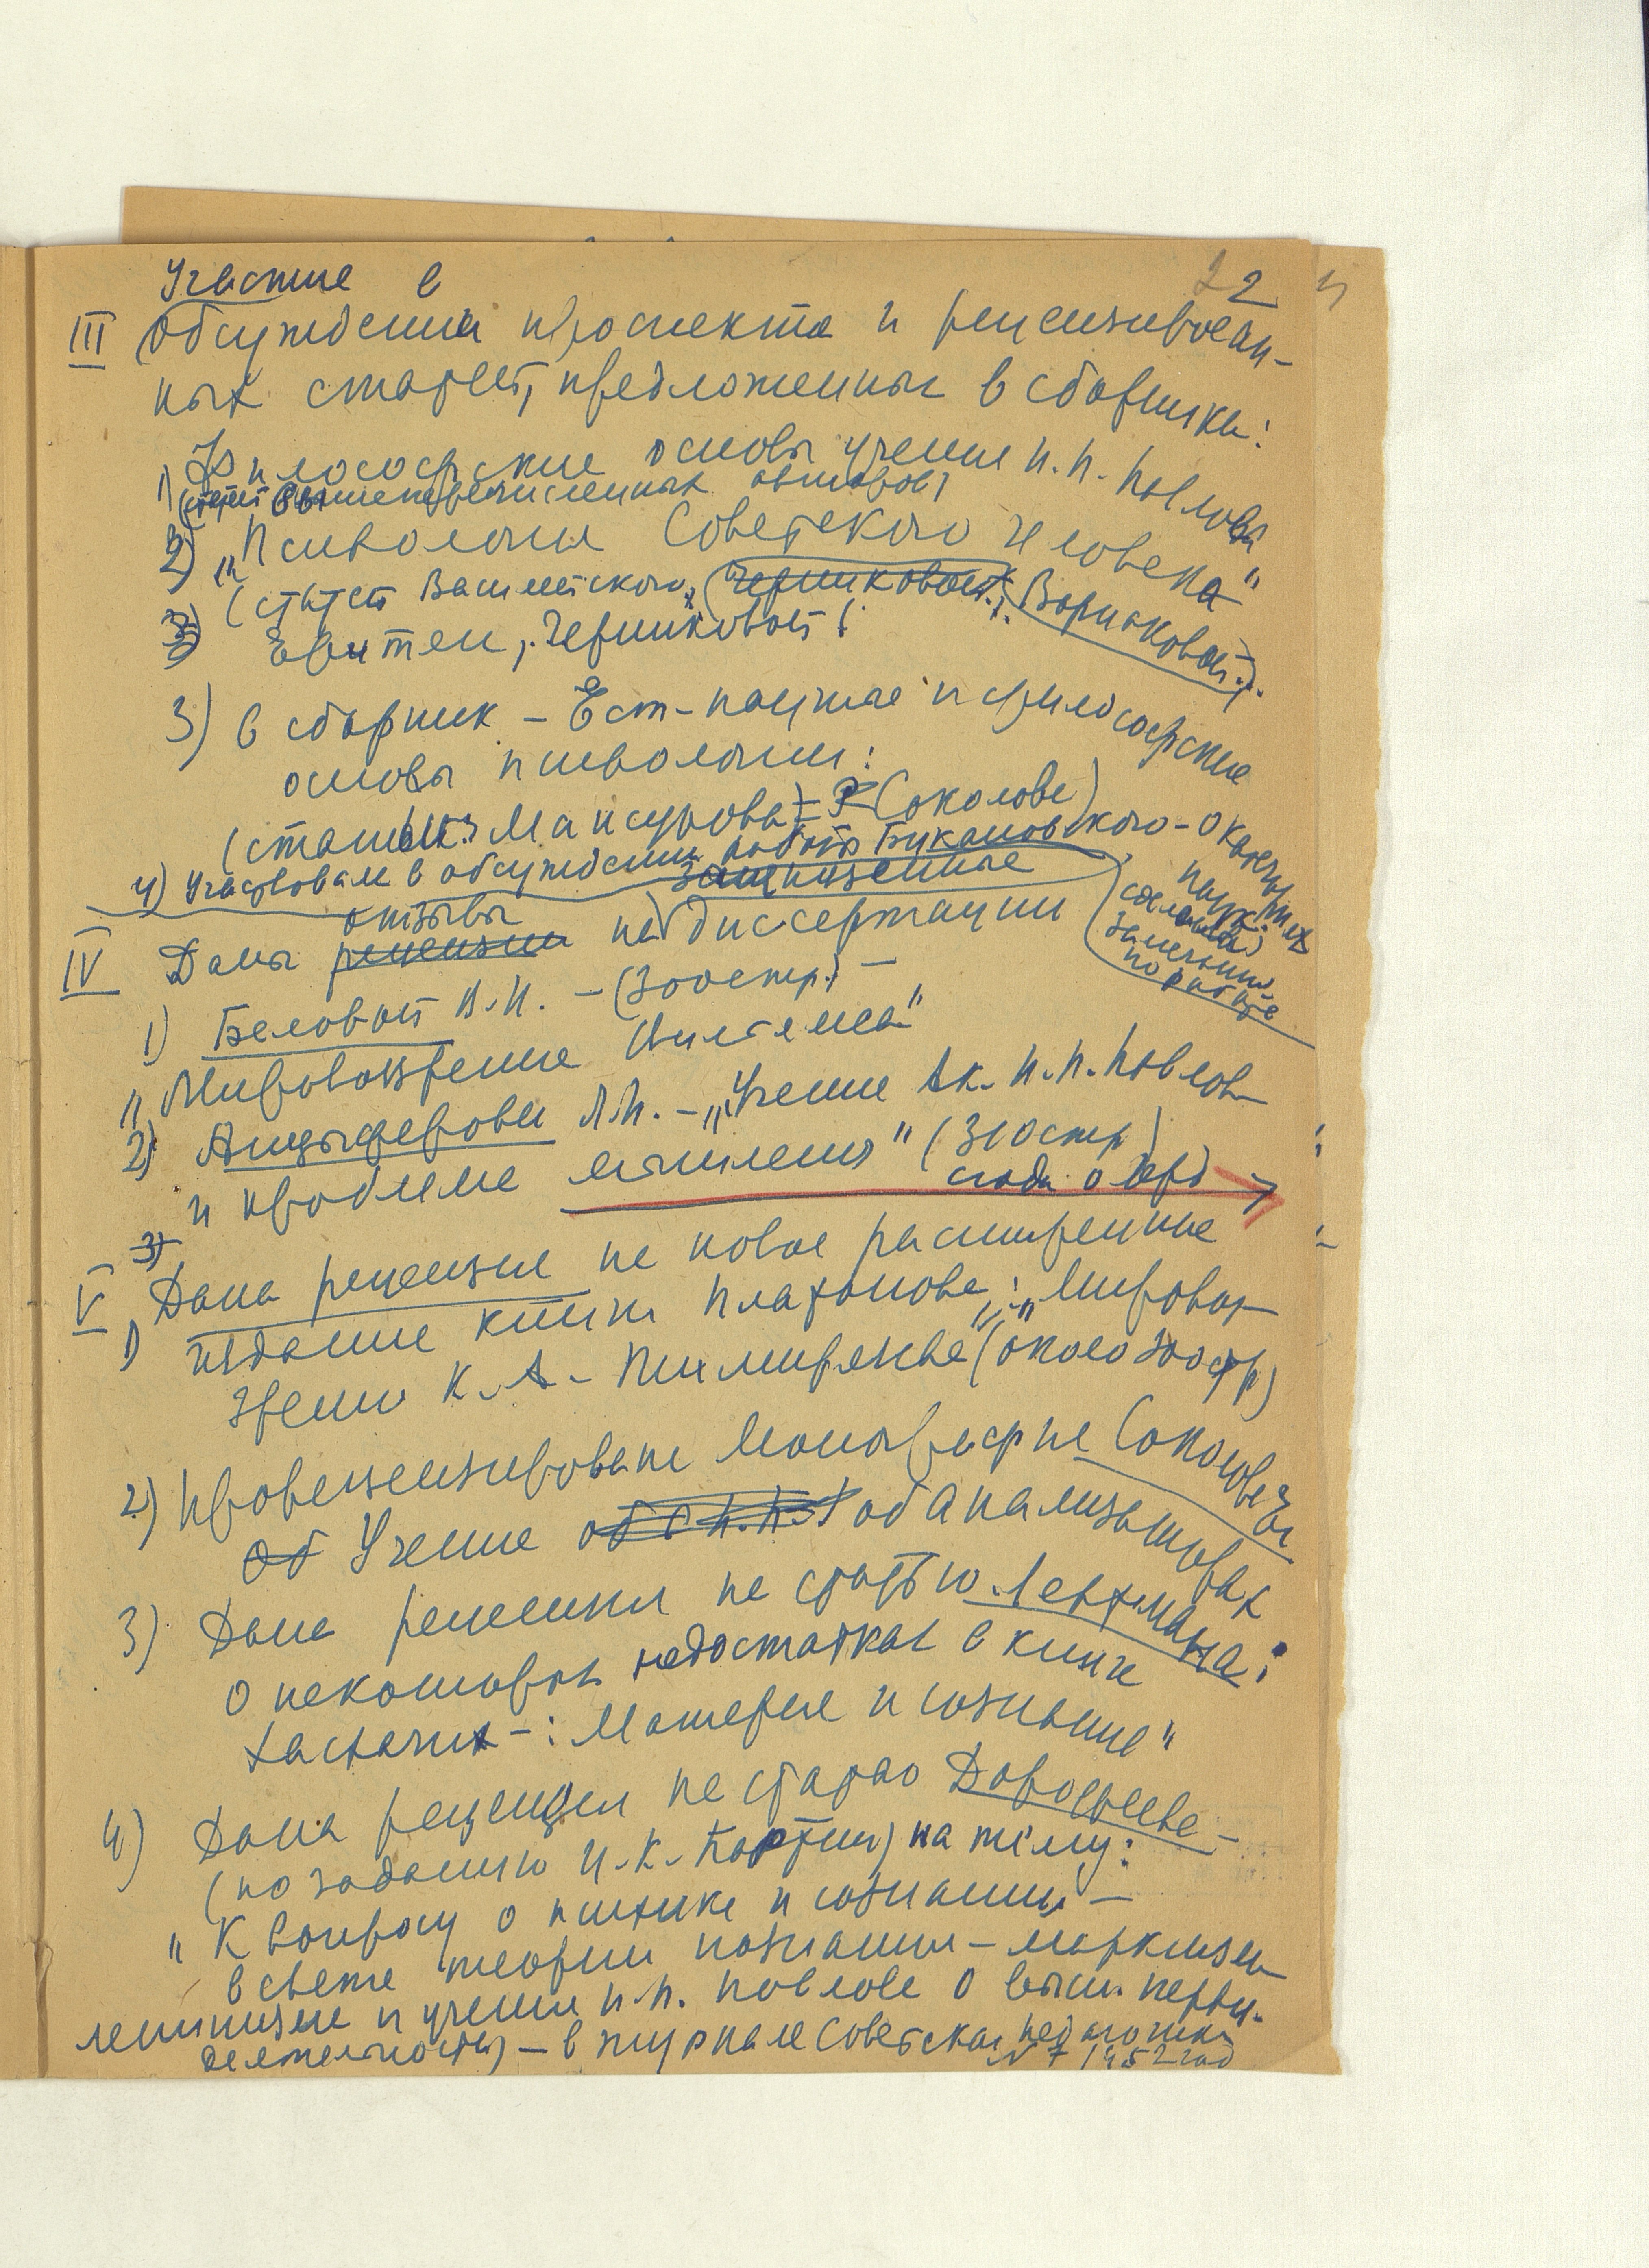 22
Участие в
III обсуждении проспекта и рецензирован-
ных статей, предложенных в сборники:
1) Философские основы учения И. П. Павлова
(статей вышеперечисленных авторов)
2) „Психология Советского человека"
(статей Василейского, Черниковой, Борисковой...
3) Эритен, Черниковой!
3) в сборник – Ест-научные и философские
основы психологии:
(статьи: Мансурова) – Р Соколова)
4) Участвовал в обсуждении работы Букановского – о
наук.
сделаны)
замечания
по работе
IV Даны рецензии отзывы на защищенные диссертации
1) Беловой В. И. – (300стр.) –
„Мировоззрение
2) Анцыферовы Л. И. – „Учение Ак. И. П. Павлова
и проблема мышления" (310стр)
сюда о
3)
V Дана рецензия на новое расширенные
1) издание книги Платонова: „Мировоз-
зрение К. А. Тимирязева" (около 300стр)
2) Прорецензирована монография Соколова
Об Учение об И. П. об анализаторах
3) Дана рецензия на статью Лейтмана:
О некоторых недостатках в книге
Хасхачих –: Материя и сознание"
4) Дана рецензия на статью Дорофеева –
(по заданию Ц. К. Партии) на тему:
„К вопросу о психике и сознании –
в свете теории познания – марксизма
ленинизма и учения И. П. Павлова о высш. нервн.
деятельности) – в журнале Советская педагогика
№ 7 1952 год